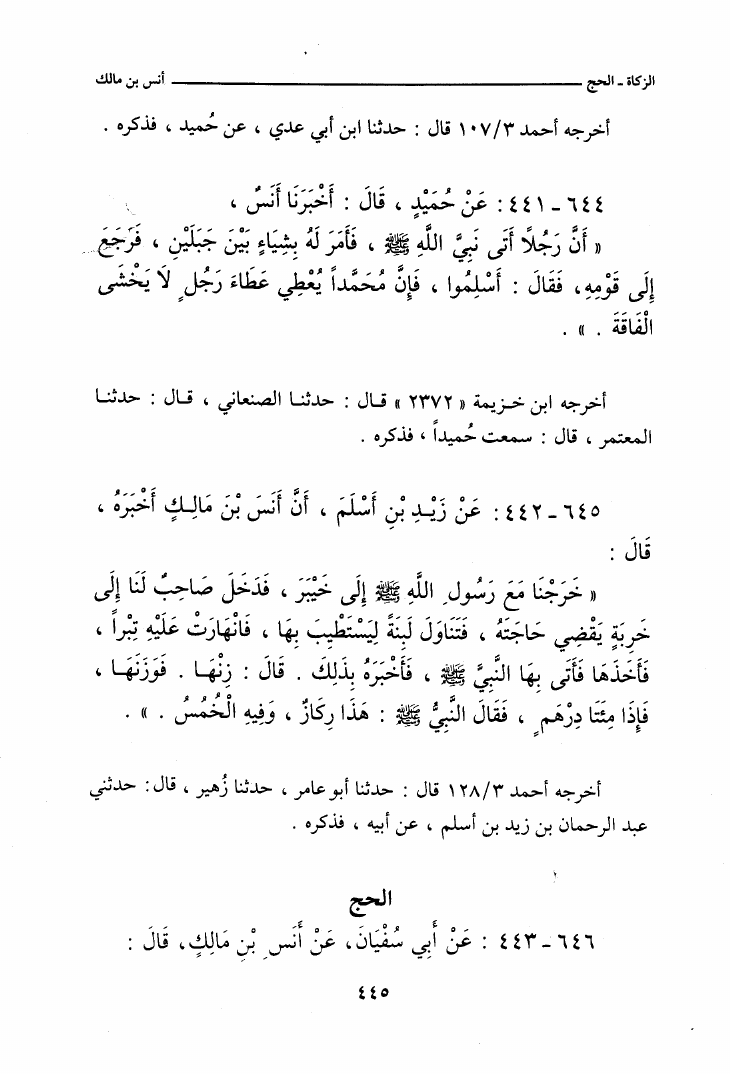 الزكاة ـ الحج أنس بن مالك
أخرجه أحمد ١٠٧/٣ قال : حدثنا ابن أبي عدي ، عن حُميد ، فذكره .
٦٤٤ - ٤٤١ : عَنْ حُمَيْدٍ ، قَالَ : أَخْبَرَنَا أَنَسٌ ،
« أَنَّ رَجُلاً أَتَى نَبِيَّ اللَّهِ ﷺ ، فَأَمَرَ لَهُ بِشِيَاءٍ بَيْنَ جَبَلَيْنِ ، فَرَجَعَ
إِلَى قَوْمِهِ، فَقَالَ : أَسْلِمُوا ، فَإِنَّ مُحَمَّداً يُعْطِي عَطَاءَ رَجُلٍ لَا يَخْشَى
الْفَاقَةَ . » .
أخرجه ابن خزيمة « ٢٣٧٢ » قال : حدثنا الصنعاني ، قال : حدثنا
المعتمر ، قال : سمعت حُميداً ، فذكره .
٦٤٥ - ٤٤٢ : عَنْ زَيْدِ بْنِ أَسْلَمَ ، أَنَّ أَنَسَ بْنَ مَالِكٍ أَخْبَرَهُ ،
قَالَ :
« خَرَجْنَا مَعَ رَسُولِ اللَّهِ ﷺ إِلَى خَيْبَرَ ، فَدَخَلَ صَاحِبٌ لَنَا إِلَى
خَرِبَةٍ يَقْضِي حَاجَتَهُ ، فَتَنَاوَلَ لَبِنَةً لِيَسْتَطِيبَ بِهَا ، فَانْهَارَتْ عَلَيْهِ تِبْراً ،
فَأَخَذَهَا فَأَتَى بِهَا النَّبِيَّ ﷺ ، فَأَخْبَرَهُ بِذَلِكَ . قَالَ : زِنْهَا . فَوَزَنَهَا ،
فَإِذَا مِئَتَا دِرْهَمٍ ، فَقَالَ النَّبِيُّ ﷺ : هَذَا رِكَازٌ ، وَفِيهِ الْخُمُسُ . » .
أخرجه أحمد ١٢٨/٣ قال : حدثنا أبو عامر ، حدثنا زُهير ، قال : حدثني
عبد الرحمان بن زيد بن أسلم ، عن أبيه ، فذكره .
الحج
٦٤٦ - ٤٤٣ : عَنْ أَبِي سُفْيَانَ، عَنْ أَنَسِ بْنِ مَالِكٍ، قَالَ :
٤٤٥